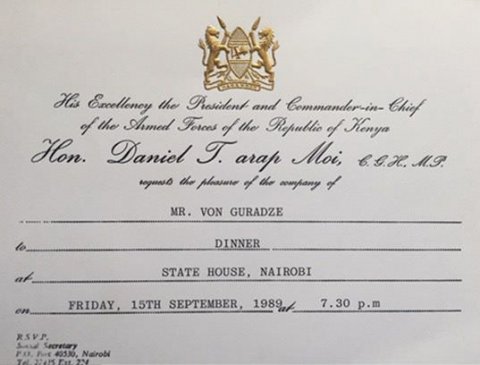 His Excellency the President and Commander-in-Chief
of the Armed Forces of the Republic of Kenya
Hon. Daniel T. arap Moi, C.G.H., M.P.
requests the pleasure of the company of
MR. VON GURADZE
to DINNER
at STATE HOUSE, NAIROBI
on FRIDAY, 15TH SEPTEMBER, 1989 at 7.30 p.m
R.S.V.P.
Social Secretary
P.O. Box 40530, Nairobi
Tel. Ext.